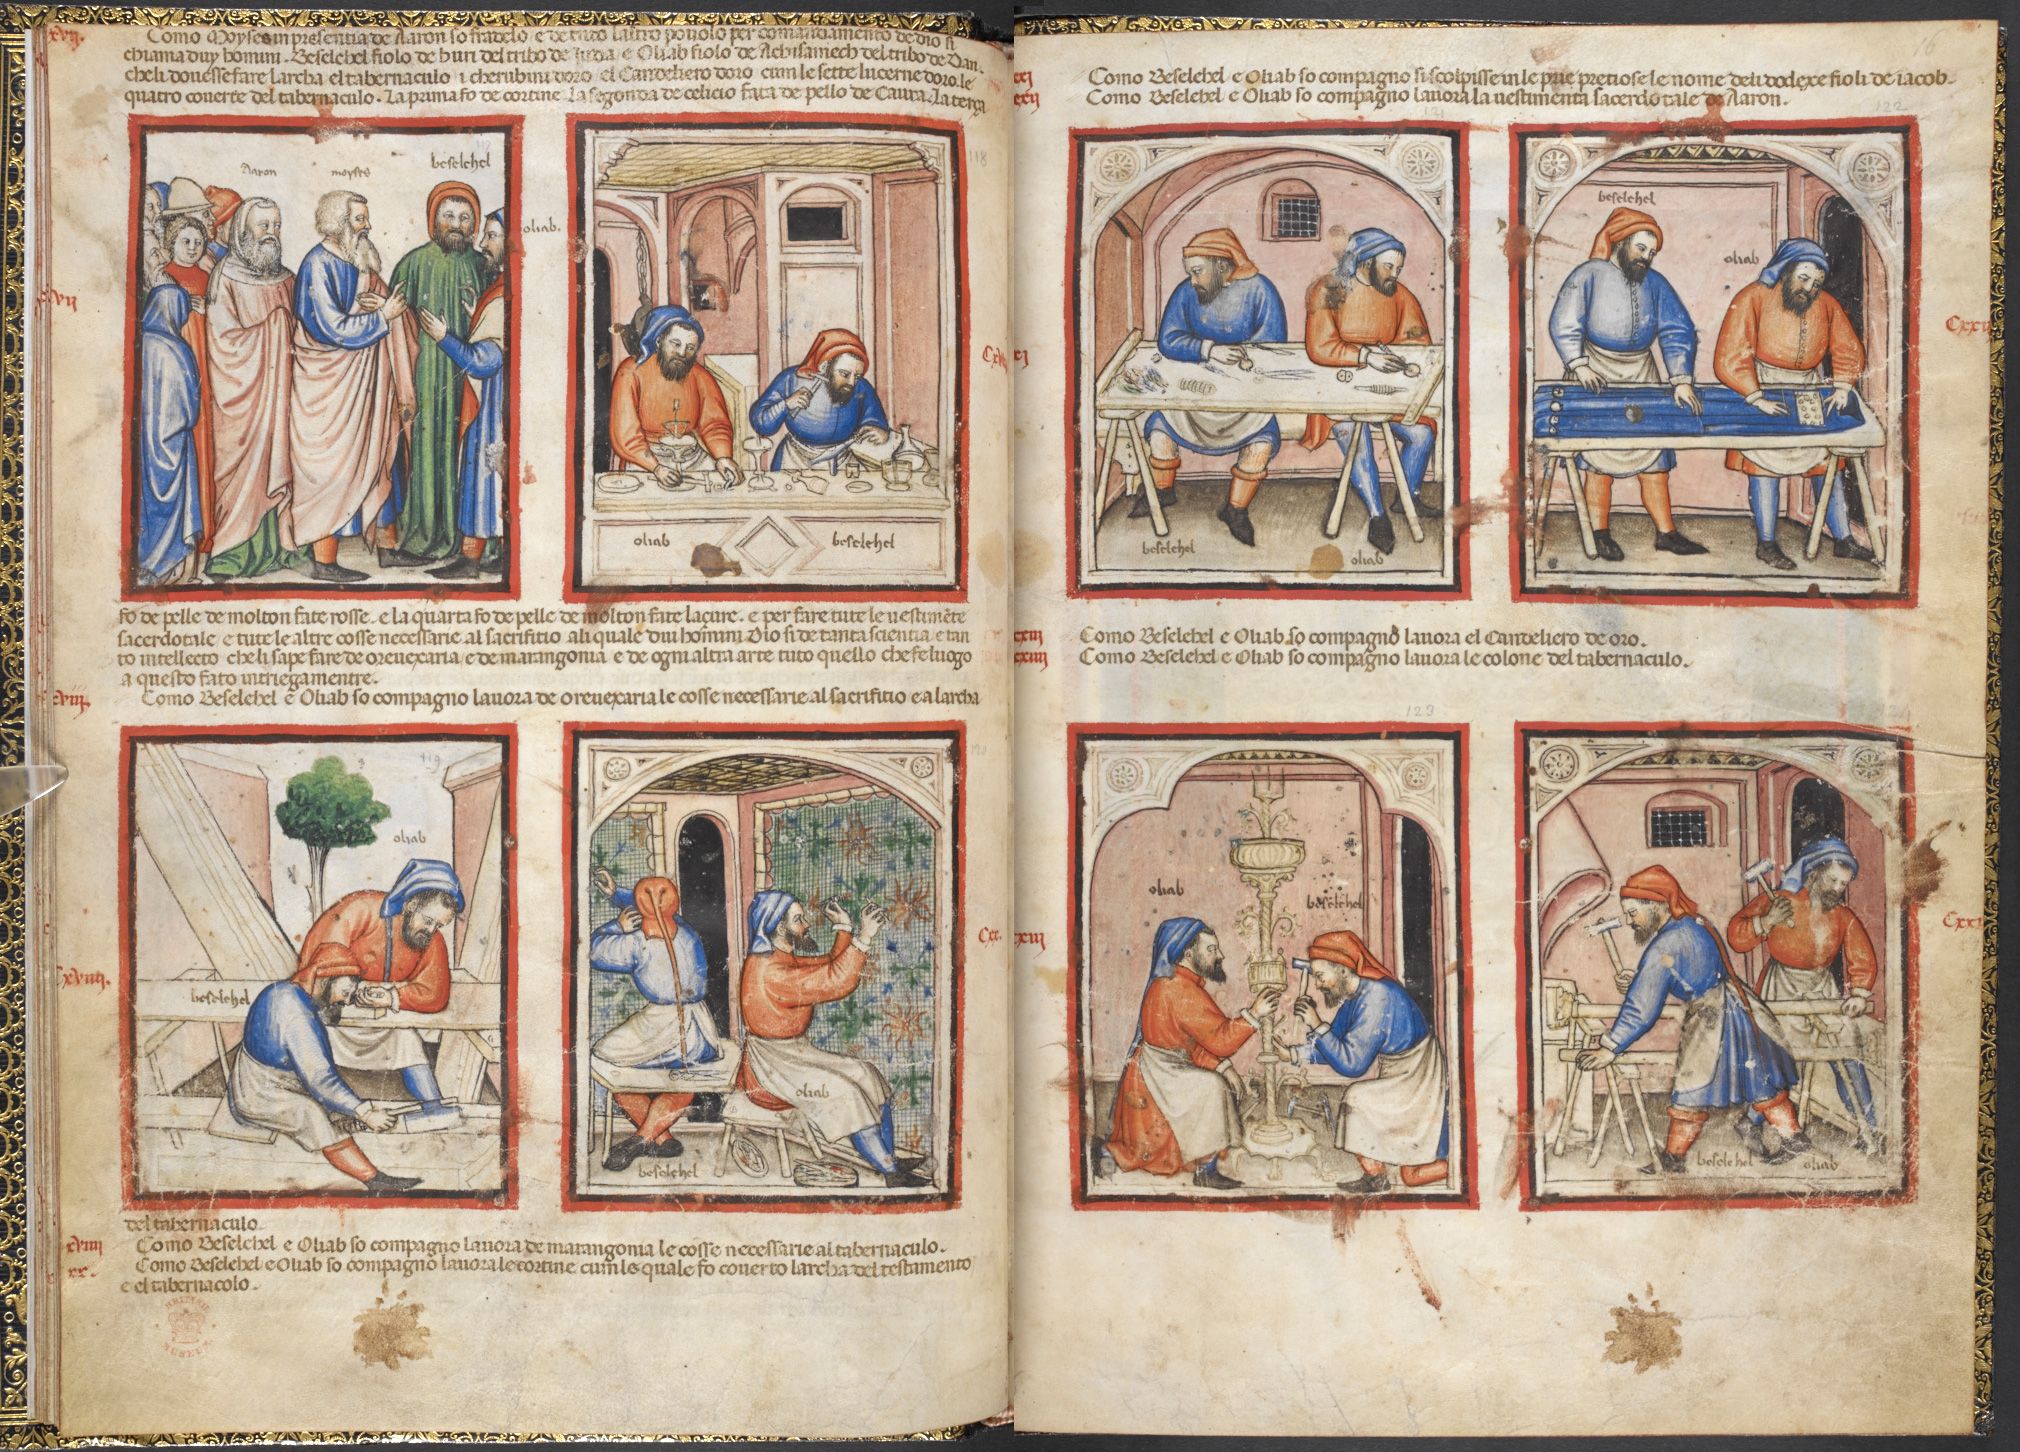 xvij.
Como Moyses in presentia de Aaron so fradelo / e de tuto laltro pouolo per comandamento de dio si
chiama duy homini. Beselehel fiolo de huri del tribo de Iuda / e Oliab fiolo de Achisamech del tribo de Dan.
che li douesse fare larcha el tabernaculo i cherubini doro / el Candeliero doro cum le sette lucerne doro. le
quatro couerte del tabernaculo. La prima fo de cortine. La segonda de celicio fata de pello de Caura. La terça
Aaron
moyses
beselehel
oliab.
118
oliab
beselehel
fo de pelle de molton fate rosse. e la quarta fo de pelle de molton fate laçure. e per fare tute le uestimẽte
sacerdotale e tute le altre cosse necessarie al sacrifitio ali quale dui homini Dio si de tanta scientia e tan
to intellecto che li sape fare de oreuexaria / e de marangonia e de ogni altra arte tuto quello che fe luogo
a questo fato intriegamentre.
Como Beselehel e Oliab so compagno lauora de oreuexaria le cosse necessarie al sacrifitio e a larcha
119
oliab
beselehel
oliab
beselehel
Cxx.
del tabernaculo.
Como Beselehel e Oliab so compagno lauora de marangonia le cosse necessarie al tabernaculo.
Como Beselehel e Oliab so compagno lauora le cortine cum le quale fo couerto larcha del testamento
e el tabernacolo.
BRITISH
MUSEUM
16
Como Beselehel e Oliab so compagno si scolpisse in le prie pretiose le nome deli dodexe fioli de iacob.
Como Beselehel e Oliab so compagno lauora la uestimenta sacerdotale de Aaron.
121
122
beselehel
oliab
beselehel
oliab
Como Beselehel e Oliab so compagno lauora el Candeliero de oro.
Como Beselehel e Oliab so compagno lauora le colone del tabernaculo.
123
oliab
beselehel
beselehel
oliab